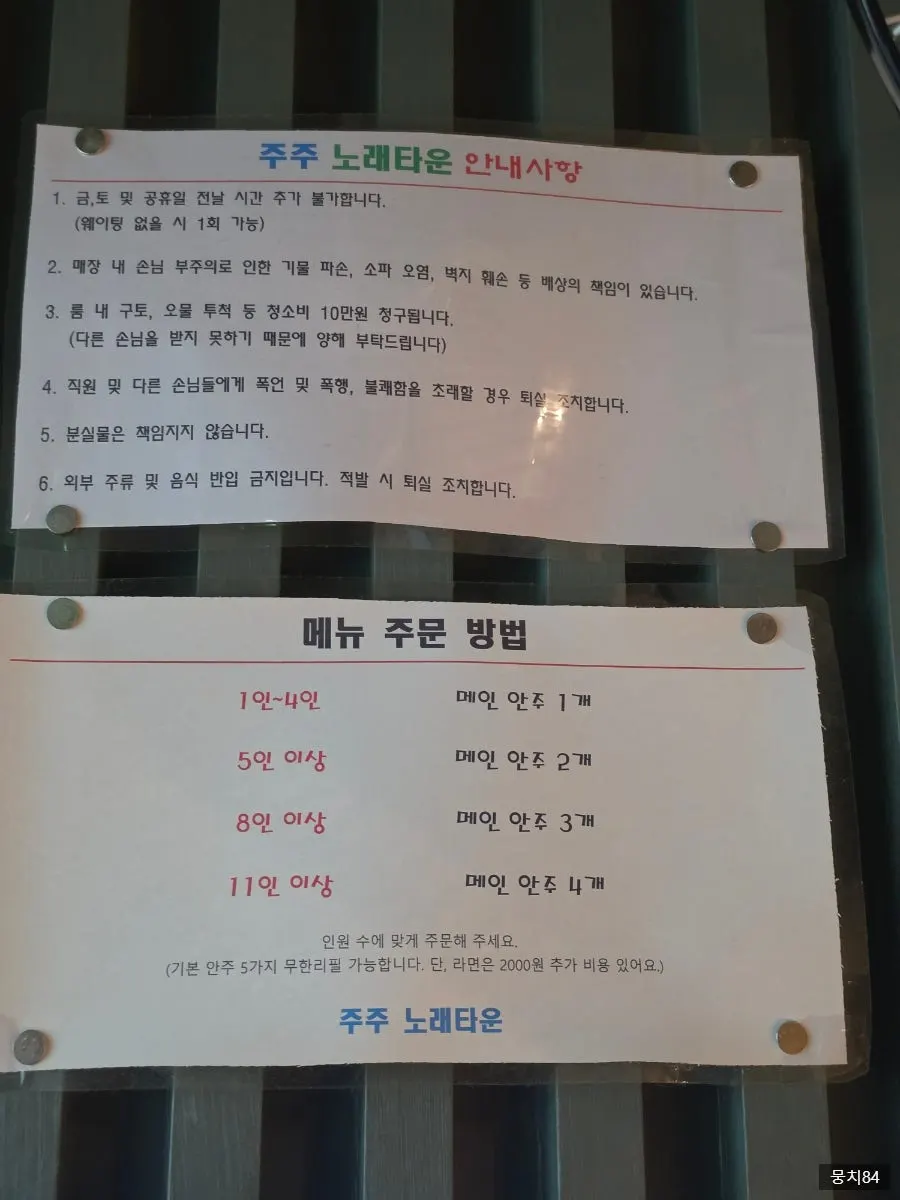 주주 노래타운 안내사항
1. 금,토 및 공휴일 전날 시간 추가 불가합니다.
(웨이팅 없을 시 1회 가능)
2. 매장 내 손님 부주의로 인한 기물 파손, 소파 오염, 벽지 훼손 등 배상의 책임이 있습니다.
3. 룸 내 구토, 오물 투척 등 청소비 10만원 청구됩니다.
(다른 손님을 받지 못하기 때문에 양해 부탁드립니다)
4. 직원 및 다른 손님들에게 폭언 및 폭행, 불쾌함을 초래할 경우 퇴실 조치합니다.
5. 분실물은 책임지지 않습니다.
6. 외부 주류 및 음식 반입 금지입니다. 적발 시 퇴실 조치합니다.
메뉴 주문 방법
1인~4인 메인 안주 1개
5인 이상 메인 안주 2개
8인 이상 메인 안주 3개
11인 이상 메인 안주 4개
인원 수에 맞게 주문해 주세요.
(기본 안주 5가지 무한리필 가능합니다. 단, 라면은 2000원 추가 비용 있어요.)
주주 노래타운
뭉치84